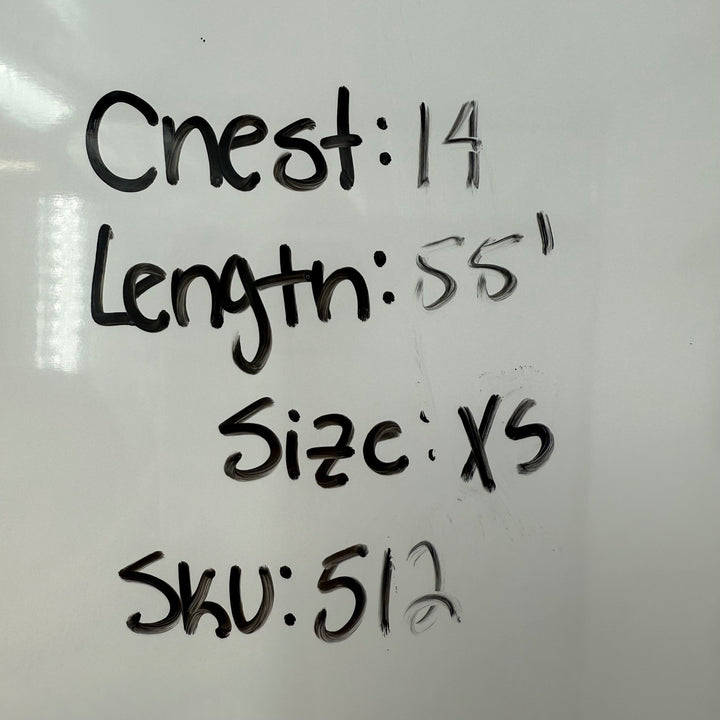 Chest: 14
Length: 55'
Size: XS
SKU: 512